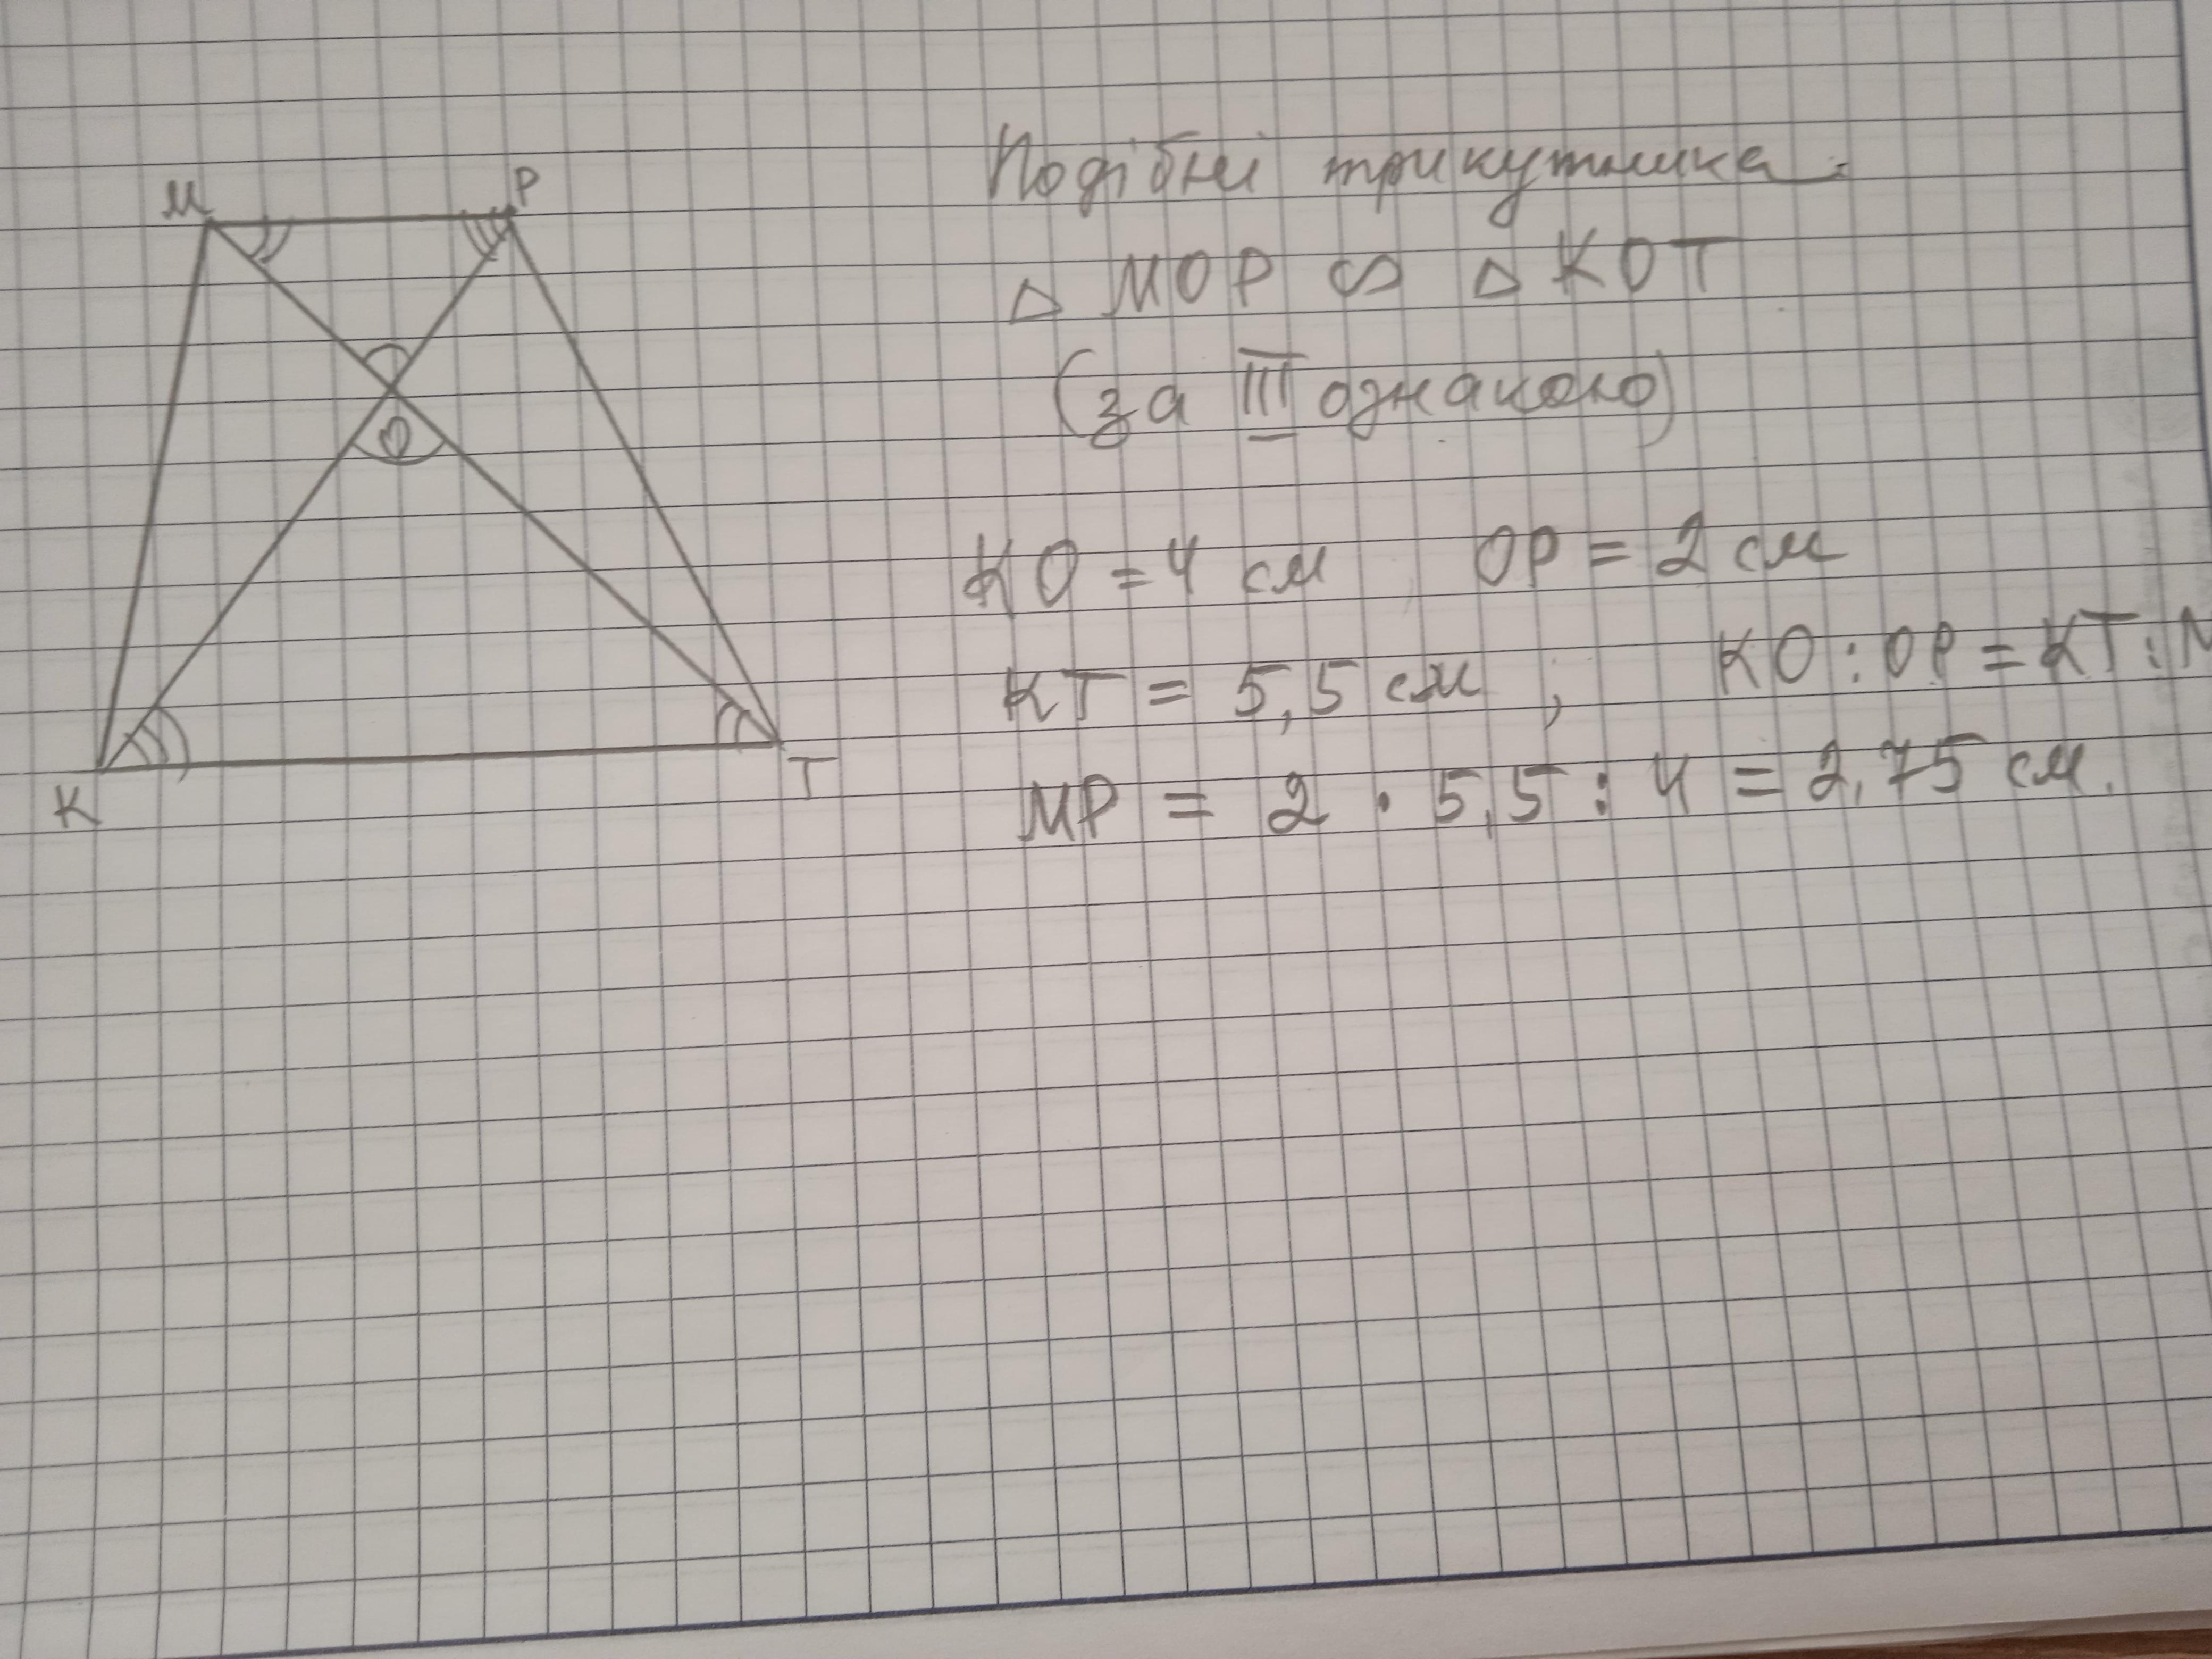 M P
O
K T
Подібні трикутника:
△ MOP ∾ △ KOT
(за III ознакою)
KO = 4 см OP = 2 см
KT = 5,5 см , KO : OP = KT : M
MP = 2 · 5,5 : 4 = 2,75 см.